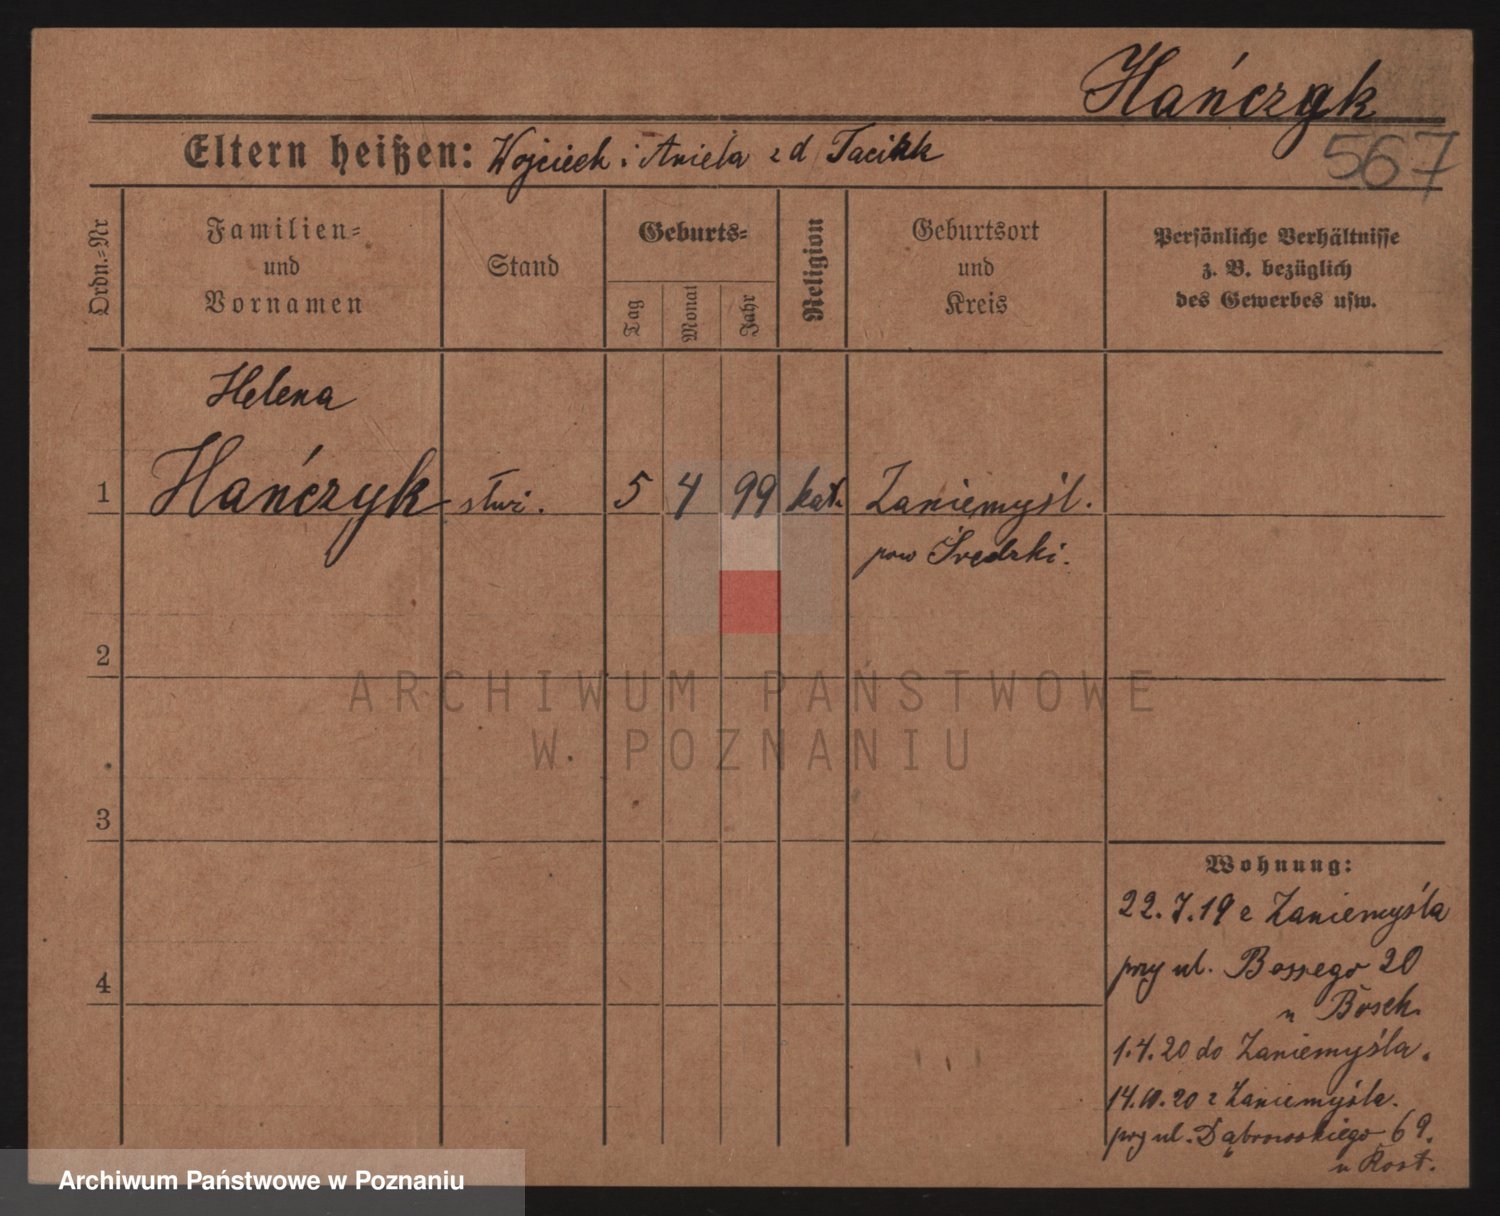 Hańczyk
567
Eltern heißen: Wojciech i Aniela z d Tacikk
Ordn.-Nr
Familien-
und
Vornamen
Stand
Geburts-
Tag
Monat
Jahr
Religion
Geburtsort
und
Kreis
Persönliche Verhältnisse
z. B. bezüglich
des Gewerbes usw.
Helena
1 Hańczyk służ. 5 4 99 kat. Zaniemyśl.
pow Średzki.
2
ARCHIWUM PAŃSTWOWE
W POZNANIU
3
Wohnung:
22.7.19 z Zaniemyśla
4 przy ul. Bossego 20
u Bosch.
1.4.20 do Zaniemyśla.
14.10.20 z Zaniemyśla.
przy ul. Dąbrowskiego 69.
u Rost.
Archiwum Państwowe w Poznaniu